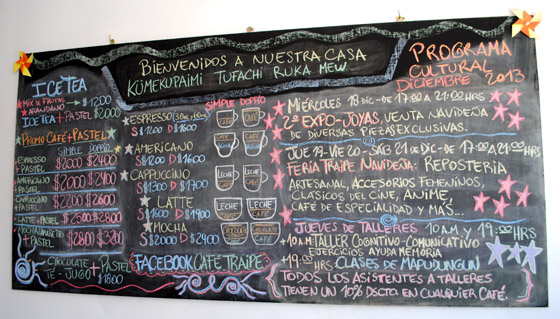 BIENVENIDOS A NUESTRA CASA
KÜMEKUPAIMI TUFACHI RUKA MEW
ICE TEA
MIX DE FRUTAS
$1200
ICE TEA + PASTEL $2000
PROMO CAFÉ + PASTEL
SIMPLE DOPPIO
ESPRESSO + PASTEL $2000 $2400
AMERICANO + PASTEL $2000 $2400
CAPUCCINO + PASTEL $2200 $2600
LATTE + PASTEL $2500 $2800
+ PASTEL $2800 $3200
CHOCOLATE + PASTEL
TÉ - JUGO $1800
SIMPLE DOPPIO
ESPRESSO
S $1200 D $1600
AMERICANO
S $1200 D $1600
CAPPUCCINO
S $1300 D $1700
LATTE
S $1600 D $1900
MOCHA
S $2000 D $2400
LECHE CAFÉ
LECHE CAFÉ
LECHE CAFÉ
LECHE CAFÉ
FACEBOOK CAFÉ TRAIPE
PROGRAMA
CULTURAL
DICIEMBRE 2013
MIÉRCOLES 18 DIC - DE 17:00 A 21:00 HRS
2ª EXPO-JOYAS, VENTA NAVIDEÑA
DE DIVERSAS PIEZAS EXCLUSIVAS.
JUE 19 - VIE 20 - SÁB 21 DIC - DE 17:00 A 21:00 HRS
FERIA TRAIPE NAVIDEÑA: REPOSTERIA
ARTESANAL, ACCESORIOS FEMENINOS,
CLASICOS DEL CINE, ANIME,
CAFÉ DE ESPECIALIDAD Y MAS...
JUEVES DE TALLERES 10 A.M Y 19:00 HRS
10 A.M TALLER COGNITIVO-COMUNICATIVO
EJERCICIOS AYUDA MEMORIA
19:00 HRS CLASES DE MAPUDUNGUN
TODOS LOS ASISTENTES A TALLERES
TIENEN UN 10% DSCTO EN CUALQUIER CAFÉ.